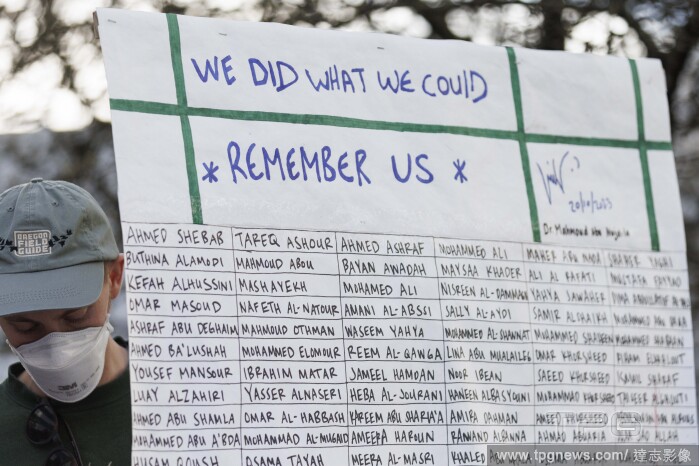 WE DID WHAT WE COULD
* REMEMBER US *
20/10/2023
Dr Mahmoud Abu
OREGON
FIELD
GUIDE
3M
AHMED SHEBAB TAREQ ASHOUR AHMED ASHRAF MOHAMMED ALI MAHER ABU
BUTHINA ALAMODI MAHMOUD ABOU BAYAN AWADAH MAYSAA KHADER ALI AL RAFATI MUSTAFA
KEFAH ALHUSSINI MASHAYEKH MOHAMED ALI NISREEN AL-DAMMAGH YAHYA SAWAHER DIMA
OMAR MASOUD NAFETH AL-NATOUR AMANI AL-ABSSI SALLY AL-AYDI SAMIR ALSHAIKH MOHAMMED ABU OMAR
ASHRAF ABU DEGHAIM MAHMOUD OTHMAN WASEEM YAHYA MOHAMMED AL-SHAWAT MUHAMMED SHAREEN MOHAMMED
AHMED BA'LUSHAH MOHAMMED ELOMOUR REEM AL-QAWQA LINA ABU MUALAILEQ OMAR KHURSHEED
YOUSEF MANSOUR IBRAHIM MATAR JAMEEL HAMDAN NOOR IBEAN SAEED KHURSHEED SHARAF
LUAY ALZAHIRI YASSER ALNASERI HEBA AL-JOURANI HANEEN ALBASYOUNI MUHAMMAD KHURSHEED
AHMED ABU SHAMLA OMAR AL-HABBASH KAREEM ABU SHARIA'A AMIRA DAHMAN AMEER
MOHAMMED ABU A'BDA MOHAMMAD AL-MUGHANI AMEERA HAROUN RAWAND ALBANNA AHMAD ABUARIA
HUSAM QOUSH OSAMA TAYAH MEERA AL-MASRI KHALED
www.tpgnews.com/ 達志影像